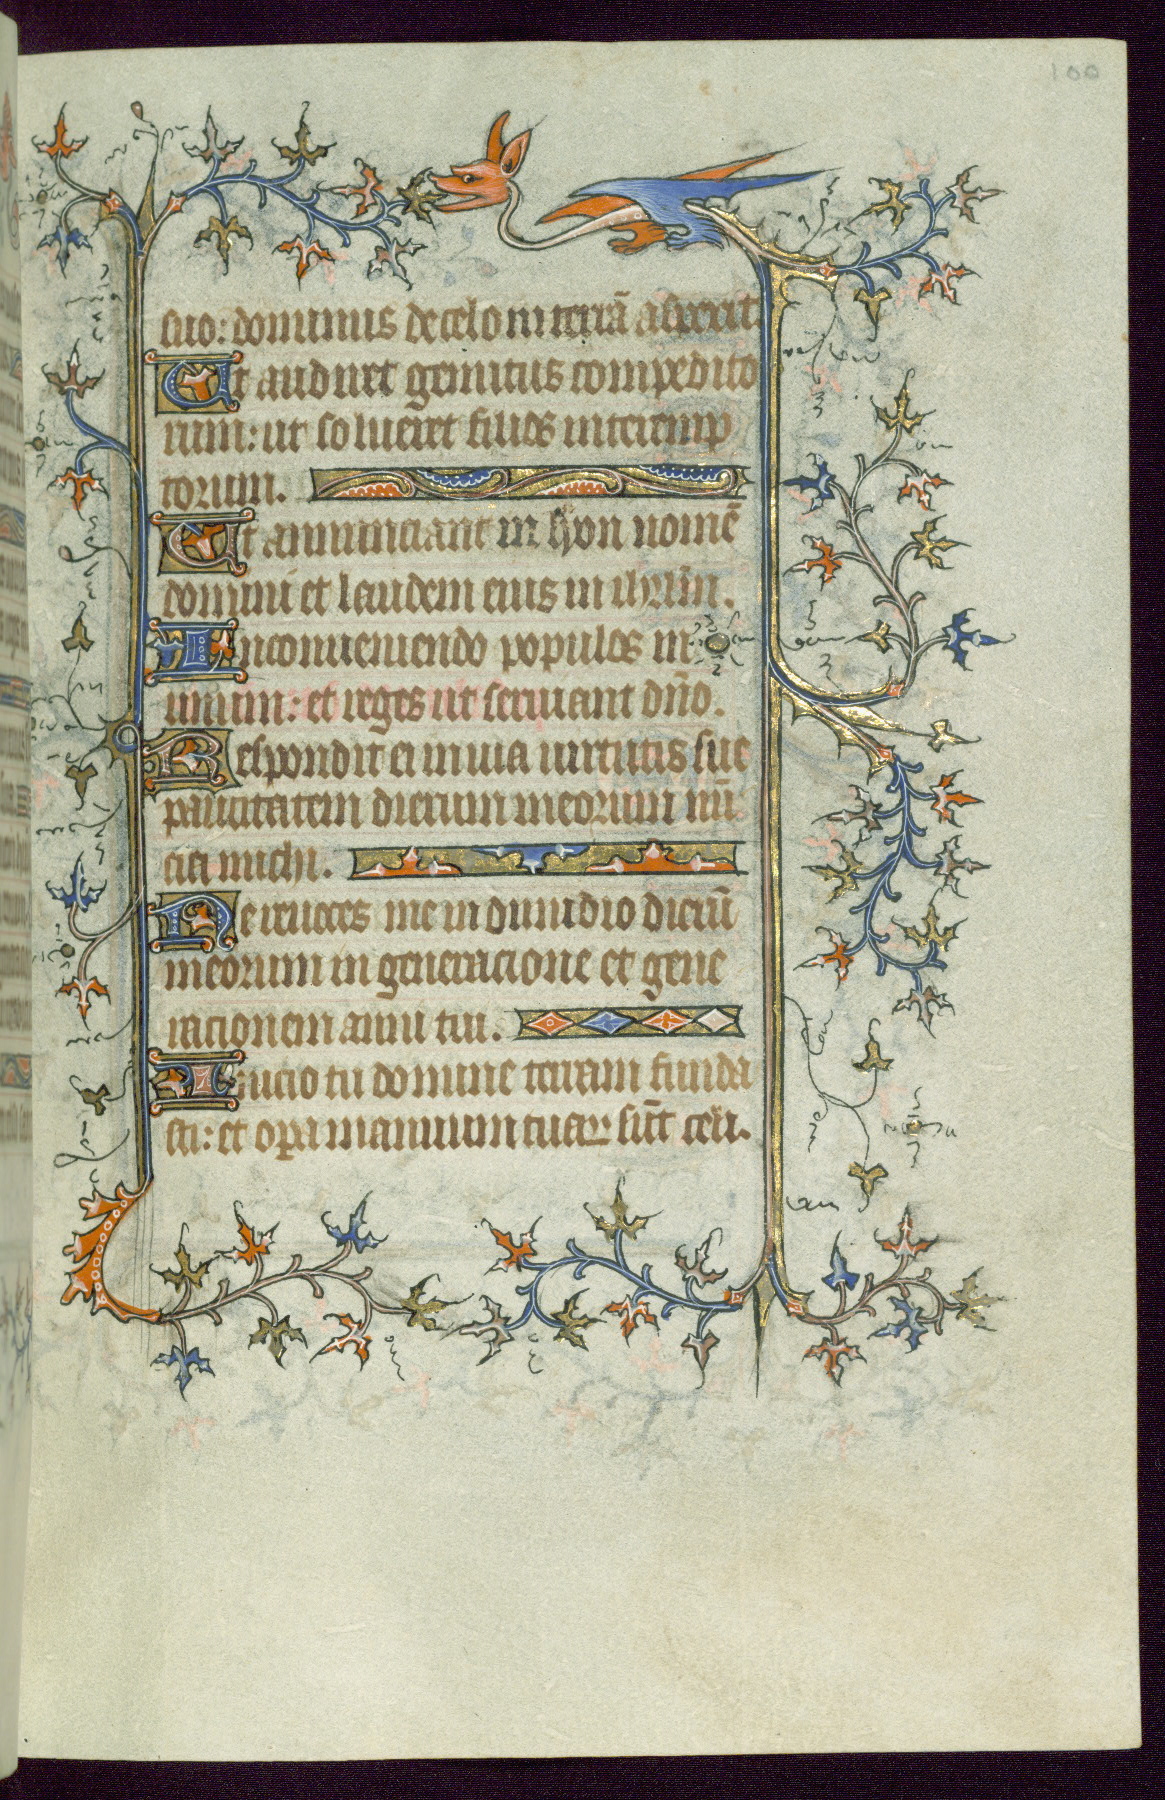 100
suo: dominus de celo in terrā aspexit.
Ut audiret gemitus compedito
rum: ut solueret filios interemp
torum.
Ut annunciant in syon nomē
domini et laudem eius in ihrlm̄.
In conueniendo populos in
unum: et reges ut seruiant dn̄o.
Respondit ei in uia uirtutis sue
paucitatem dierum meorum nū
cia michi.
Ne reuoces me in dimidio dierū
meorum in generacione et gene
racionem anni tui.
Inicio tu domine terram funda
sti: et opa manuum tuar sūt celi.